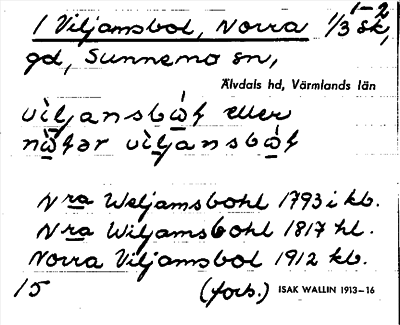 1-2
1 Viljamsbol, Norra 1/3 sk,
gd, Sunnemo sn,
Älvdals hd, Värmlands län
vìljansbò̱ɫ eller
nò̱ɫər vìljansbò̱ɫ
N ra Weljamsbohl 1793 i kb.
N ra Wiljamsbohl 1817 hl.
Norra Viljamsbol 1912 kb.
15 (forts.) ISAK WALLIN 1913-16